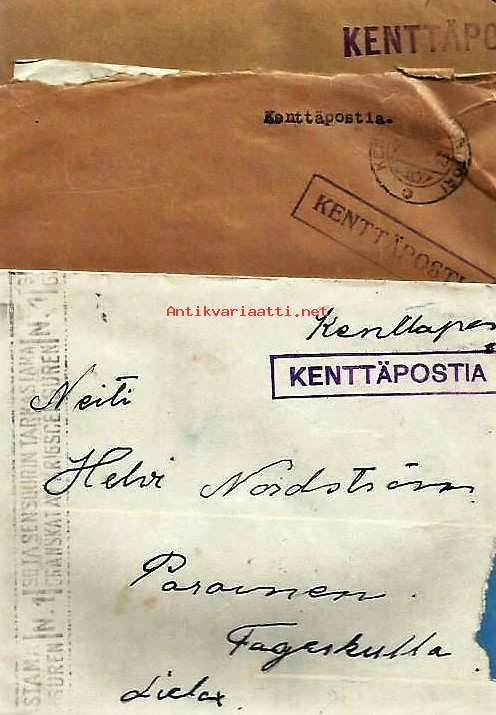 KENTTÄPO
Kenttäpostia.
KENTTÄPOSTI
Antikvariaatti.net
Kenttäpos
KENTTÄPOSTIA
Neiti
Helvi Nordström
Parainen.
Fagerkulla.
SOTASENSUURIN TARKASTAMA N. 1
GRANSKAT AV KRIGSCENSUREN N. 1